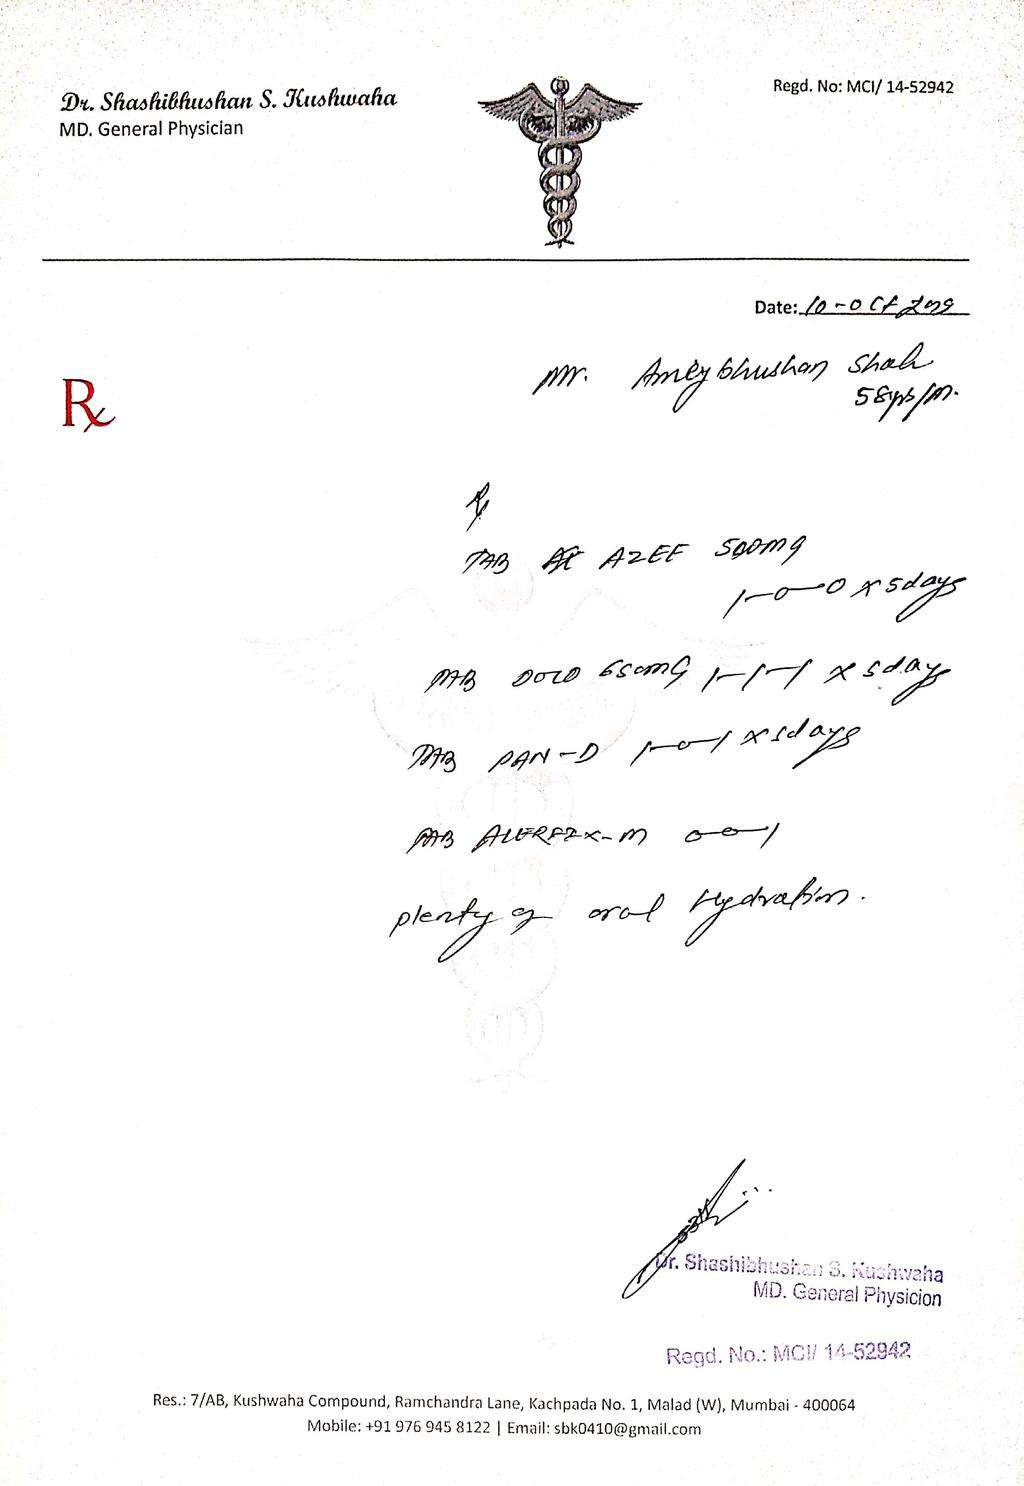 Dr. Shashibhushan S. Kushwaha
MD. General Physician
Regd. No: MCI/ 14-52942
Date: 10-Oct
Rx
Mr. bhushan Shah
58yrs/M.
Rx
TAB AZEE 500mg
1-0-0 x 5days
TAB DOLO 650mG 1-1-1 x 5days
TAB PAN-D 1-0-1 x 5days
TAB -M 0-0-1
plenty of oral Hydration.
Dr. Shashibhushan S. Kushwaha
MD. General Physicion
Regd. No.: MCI/ 14-52942
Res.: 7/AB, Kushwaha Compound, Ramchandra Lane, Kachpada No. 1, Malad (W), Mumbai - 400064
Mobile: +91 976 945 8122 | Email: sbk0410@gmail.com